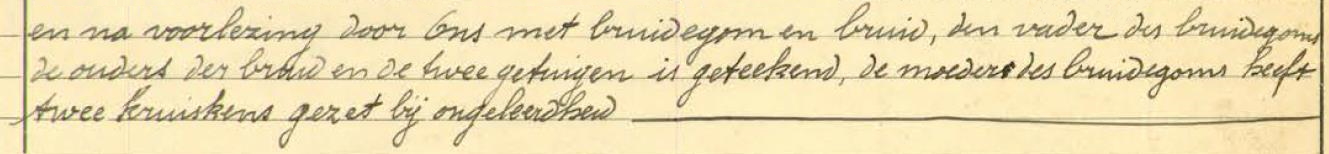 en na voorlezing door Ons met bruidegom en bruid, den vader des bruidegoms
de ouders der bruid en de twee getuigen is geteekend, de moeder des bruidegoms heeft
twee kruiskens gezet bij ongeleerdheid